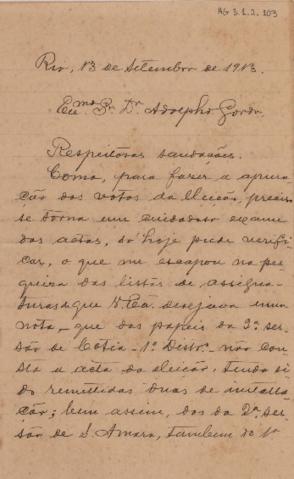 AG 3.1.2.103
Rio, 13 de Setembro de 1913.
Exmo Sr. Dr. Adolpho Gordo.
Respeitosas saudações.
Como, para fazer a apura-
ção dos votos da eleição, precisa
se torna um cuidadoso exame
das actas, só hoje pude verifi-
car, o que me escapou na pes
queira das listas de assigna-
turas de que V. Exa. desejava uma
nota, que dos papeis da 3ª sec-
ção de Cotia - 1º Distro. não cons
ta a acta da eleição, tendo si
do remettidas duas de installa-
ção; bem assim, dos da 2ª sec-
ção de S. Amaro, tambem do 1º